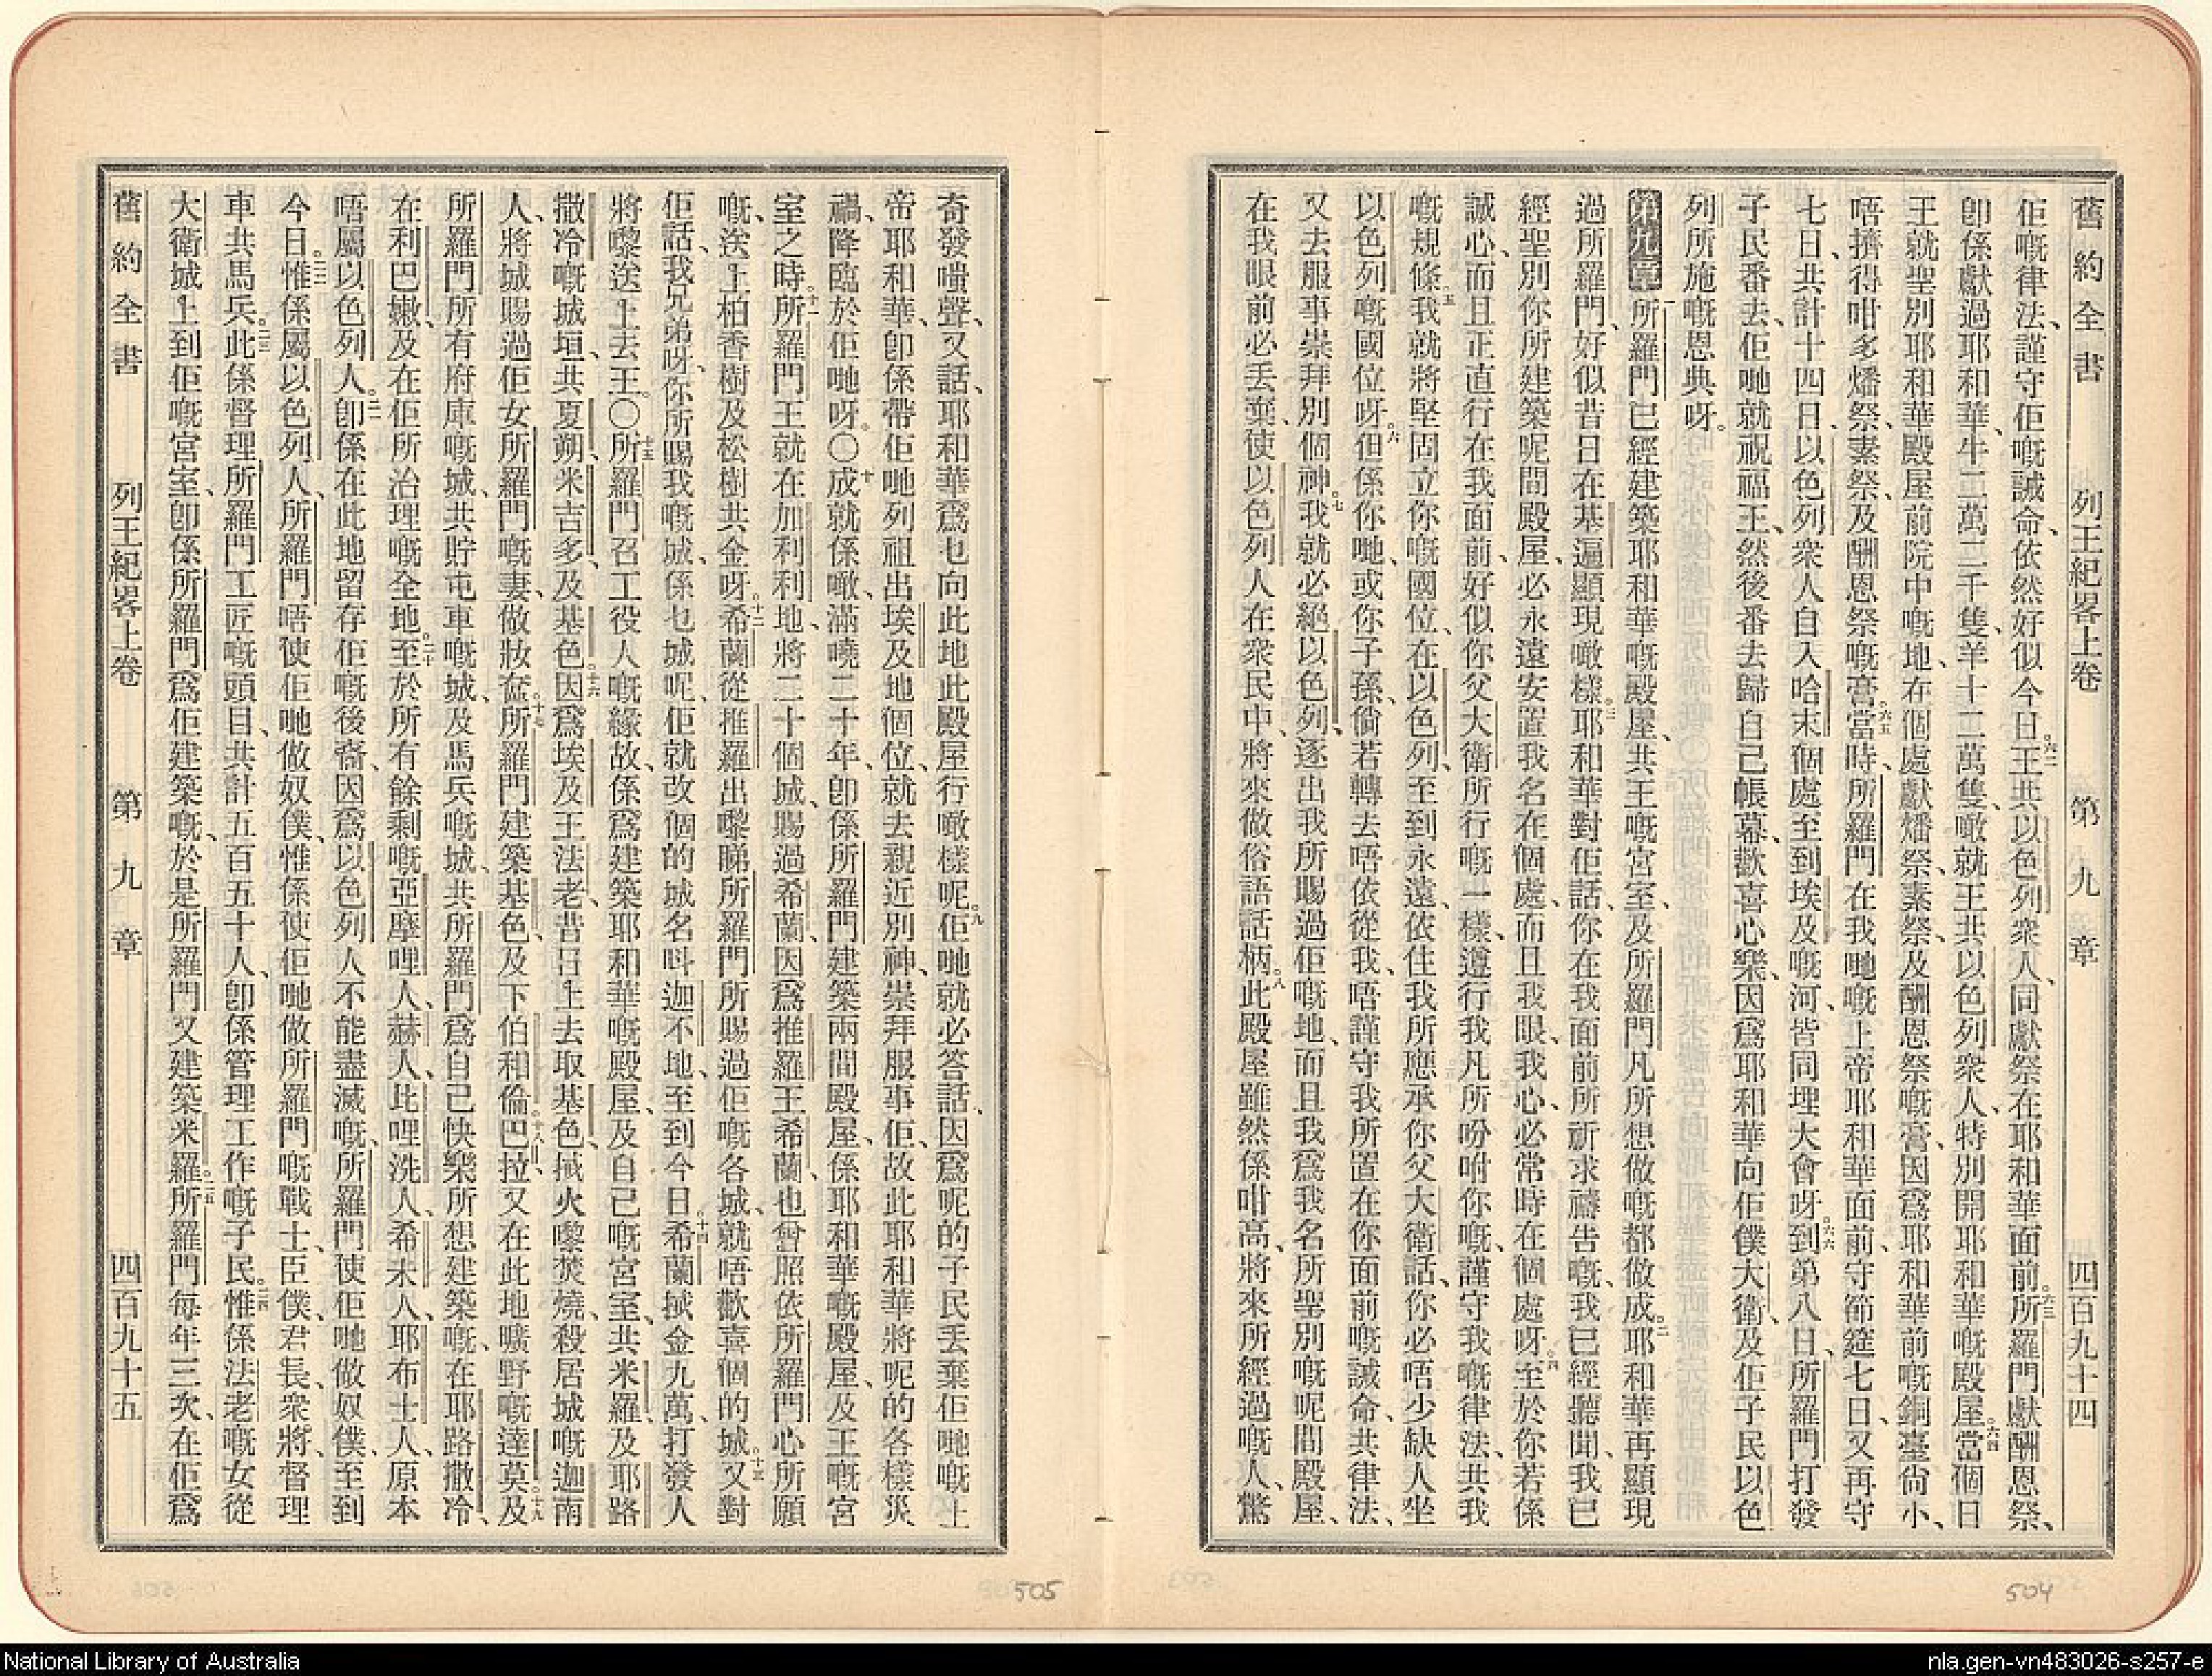 舊約全書 列王紀畧上卷 第九章 四百九十四
佢嘅律法、謹守佢嘅誡命、依然好似今日。六二王共以色列衆人、同獻祭在耶和華面前。六三所羅門獻酬恩祭、
卽係獻過耶和華、牛二萬二千隻、羊十二萬隻、噉就王共以色列衆人、特別開耶和華嘅殿屋。六四當個日
王就聖別耶和華殿屋前院中嘅地、在個處獻燔祭、素祭、及酬恩祭嘅膏、因爲耶和華前嘅銅臺尙小、
唔擠得咁多燔祭、素祭、及酬恩祭嘅膏。六五當時、所羅門在我哋嘅上帝耶和華面前、守節筵七日、又再守
七日、共計十四日、以色列衆人自入哈末個處至到埃及嘅河、皆同埋大會呀。六六到第八日、所羅門打發
子民番去、佢哋就祝福王、然後番去歸自己帳幕、歡喜心樂、因爲耶和華向佢僕大衛、及佢子民以色
列所施嘅恩典呀。
第九章 一所羅門已經建築耶和華嘅殿屋、共王嘅宮室、及所羅門凡所想做嘅都做成。二耶和華再顯現
過所羅門、好似昔日在基遍顯現噉樣。三耶和華對佢話、你在我面前所祈求禱告嘅、我已經聽聞、我已
經聖別你所建築呢間殿屋、必永遠安置我名在個處、而且我眼、我心、必常時在個處呀。四至於你若係
誠心、而且正直行在我面前、好似你父大衛所行嘅一樣、遵行我凡所吩咐你嘅、謹守我嘅律法、共我
嘅規條。五我就將堅固立你嘅國位、在以色列、至到永遠、依住我所應承你父大衛話、你必唔少缺人坐
以色列嘅國位呀。六但係你哋、或你子孫、倘若轉去唔依從我、唔謹守我所置在你面前嘅誡命、共律法、
又去服事崇拜別個神。七我就必絕以色列、逐出我所賜過佢嘅地、而且我爲我名所聖別嘅呢間殿屋、
在我眼前必丟棄、使以色列人在衆民中、將來做俗語話柄。八此殿屋雖然係咁高、將來所經過嘅人、驚
504
奇發嗤聲、又話、耶和華爲乜向此地此殿屋行噉樣呢。九佢哋就必答話、因爲呢的子民丟棄佢哋嘅上
帝耶和華、卽係帶佢哋列祖出埃及地個位、就去親近別神、崇拜服事佢、故此耶和華將呢的各樣災
禍、降臨於佢哋呀。〇十成就係噉、滿嘵二十年、卽係所羅門建築兩間殿屋、係耶和華嘅殿屋、及王嘅宮
室之時。十一所羅門王就在加利利地、將二十個城、賜過希蘭、因爲推羅王希蘭也曾照依所羅門心所願
嘅、送上柏香樹及松樹共金呀。十二希蘭從推羅出嚟睇所羅門所賜過佢嘅各城、就唔歡喜個的城。十三又對
佢話、我兄弟呀、你所賜我嘅城、係乜城呢、佢就改個的城名叫迦不地、至到今日。十四希蘭㧜金九萬、打發人
將嚟送上去王。〇十五所羅門召工役人嘅緣故、係爲建築耶和華嘅殿屋、及自己嘅宮室、共米羅、及耶路
撒冷嘅城垣、共夏朔、米吉多、及基色。十六因爲埃及王法老、昔日上去取基色、㧜火嚟焚燒、殺居城嘅迦南
人、將城賜過佢女所羅門嘅妻、做妝奩。十七所羅門建築基色、及下伯和倫。十八巴拉、又在此地曠野嘅達莫及十九
所羅門所有府庫嘅城、共貯屯車嘅城、及馬兵嘅城、共所羅門爲自己快樂所想建築嘅、在耶路撒冷、
在利巴嫩、及在佢所治理嘅全地。二十至於所有餘剩嘅亞摩哩人、赫人、比哩洗人、希未人、耶布士人、原本
唔屬以色列人。二一卽係在此地留存佢嘅後裔、因爲以色列人不能盡滅嘅、所羅門使佢哋做奴僕、至到
今日。二二惟係屬以色列人、所羅門唔使佢哋做奴僕、惟係使佢哋做所羅門嘅戰士、臣僕、君長、衆將、督理
車共馬兵。二三此係督理所羅門工匠嘅頭目、共計五百五十人、卽係管理工作嘅子民。二四惟係法老嘅女從
大衛城上到佢嘅宮室、卽係所羅門爲佢建築嘅、於是所羅門又建築米羅。二五所羅門每年三次、在佢爲
舊約全書 列王紀畧上卷 第九章 四百九十五
505
National Library of Australia
nla.gen-vn483026-s257-e